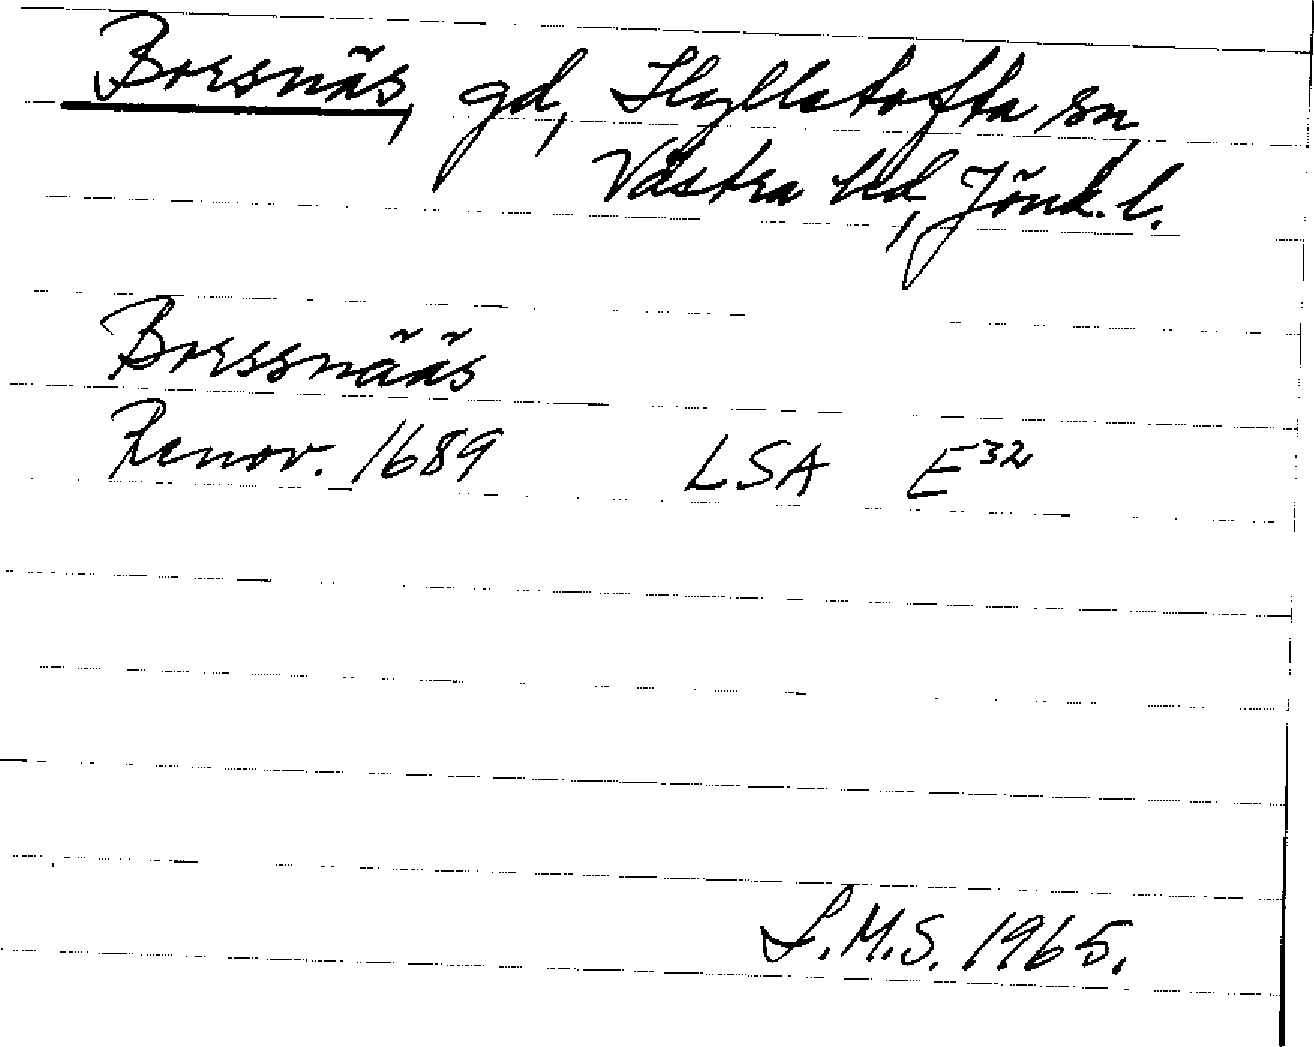 Borsnäs, gd, Hyllstofta sn,
Västra hd, Jönk. l.
Borssnääs
Renov. 1689 LSA E32
L.M.S. 1965.